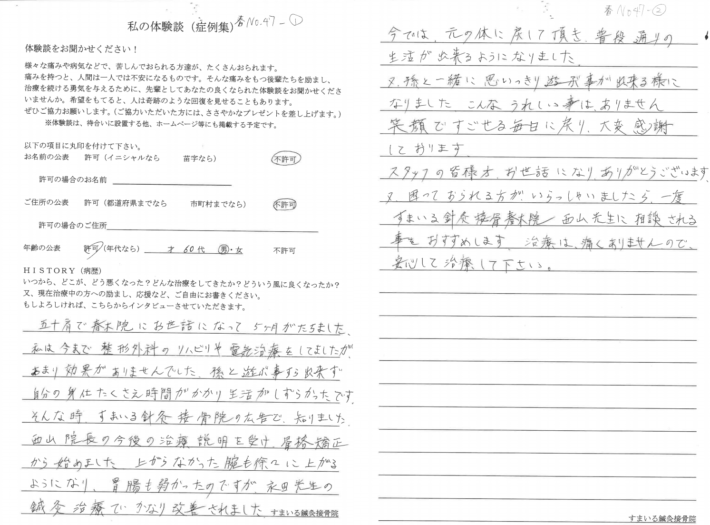 春No.47-①
私の体験談（症例集）
体験談をお聞かせください！
様々な痛みや病気などで、苦しんでおられる方達が、たくさんおられます。
痛みを持つと、人間は一人では不安になるものです。そんな痛みをもつ後輩たちを励まし、
治療を続ける勇気を与えるために、先輩としてあなたの良くなられた体験談をお聞かせくださ
いませんか。希望をもてると、人は奇跡のような回復を見せることもあります。
ぜひご協力お願いします。（ご協力いただいた方には、ささやかなプレゼントを差し上げます。）
※体験談は、待合いに設置する他、ホームページ等にも掲載する予定です。
以下の項目に丸印を付けて下さい。
お名前の公表　許可（イニシャルなら　苗字なら）　不許可
許可の場合のお名前
ご住所の公表　許可（都道府県までなら　市町村までなら）　不許可
許可の場合のご住所
年齢の公表　許可（年代なら）　才 60代　男・女　不許可
HISTORY（病歴）
いつから、どこが、どう悪くなった？どんな治療をしてきたか？どういう風に良くなったか？
又、現在治療中の方への励まし、応援など、ご自由にお書きください。
もしよろしければ、こちらからインタビューさせていただきます。
五十肩で春木院にお世話になって5ヶ月がたちました。
私は今まで整形外科のリハビリや電気治療をしてましたが、
あまり効果がありませんでした。孫と遊ぶ事すら出来ず
自分の身仕たくさえ時間がかかり生活がしずらかったです。
そんな時 すまいる針灸接骨院の広告で、知りました。
西山院長の今後の治療説明を受け、骨格矯正
から始めました 上がらなかった腕も徐々に上がる
ようになり、胃腸も弱かったのですが永田先生の
鍼灸治療でかなり改善されました
すまいる鍼灸接骨院
春No.47-②
今では、元の体に戻して頂き、普段通りの
生活が出来るようになりました。
又、孫と一緒に思いっきり遊ぶ事が出来る様に
なりました こんなうれしい事はありません
笑顔ですごせる毎日に戻り、大変感謝
しております。
スタッフの皆様方、お世話になりありがとうございます。
又、困っておられる方がいらっしゃいましたら、一度
すまいる針灸接骨春木院 西山先生に相談される
事をおすすめします。治療は、痛くありませんので、
安心して治療して下さい。
すまいる鍼灸接骨院